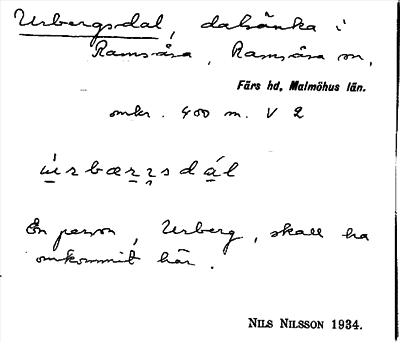 Urbergsdal, dalsänka i
Ramsåsa, Ramsåsa sn,
Färs hd, Malmöhus län.
omkr. 400 m. V 2
u̱̇rbæṟɿsdá̱l
En person, Urberg, skall ha
omkommit här.
NILS NILSSON 1934.